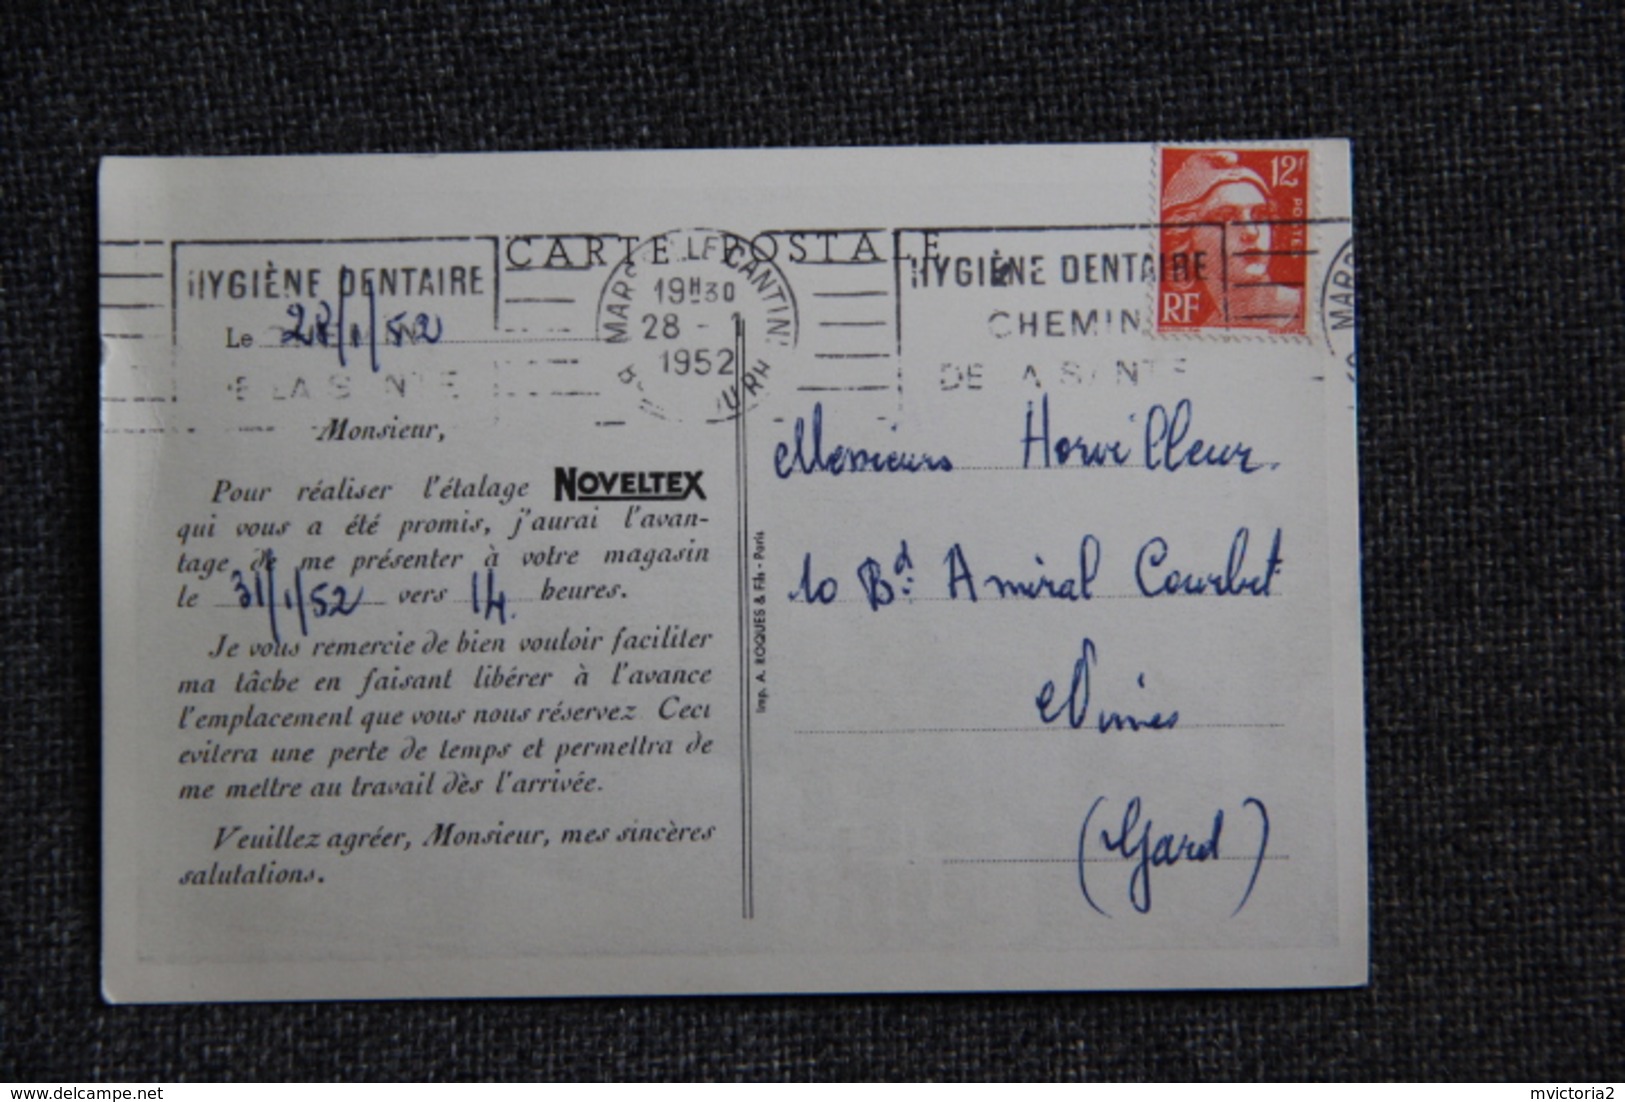 CARTE POSTALE
12F
POSTES
RF
HYGIÈNE DENTAIRE
CHEMIN
DE LA SANTE
19H30
28 - 1
1952
HYGIÈNE DENTAIRE
CHEMIN
DE LA SANTE
Le 28/1/52
Monsieur,
Pour réaliser l'étalage NOVELTEX
qui vous a été promis, j'aurai l'avan-
tage de me présenter à votre magasin
le 31/1/52 vers 14 heures.
Je vous remercie de bien vouloir faciliter
ma tâche en faisant libérer à l'avance
l'emplacement que vous nous réservez. Ceci
evitera une perte de temps et permettra de
me mettre au travail dès l'arrivée.
Veuillez agréer, Monsieur, mes sincères
salutations.
Imp. A. ROQUES & Fils - Paris
Messieurs Horvilleur.
10 Bd. Amiral Courbet
Nimes
(Gard)
delcampe.net
mvictoria2